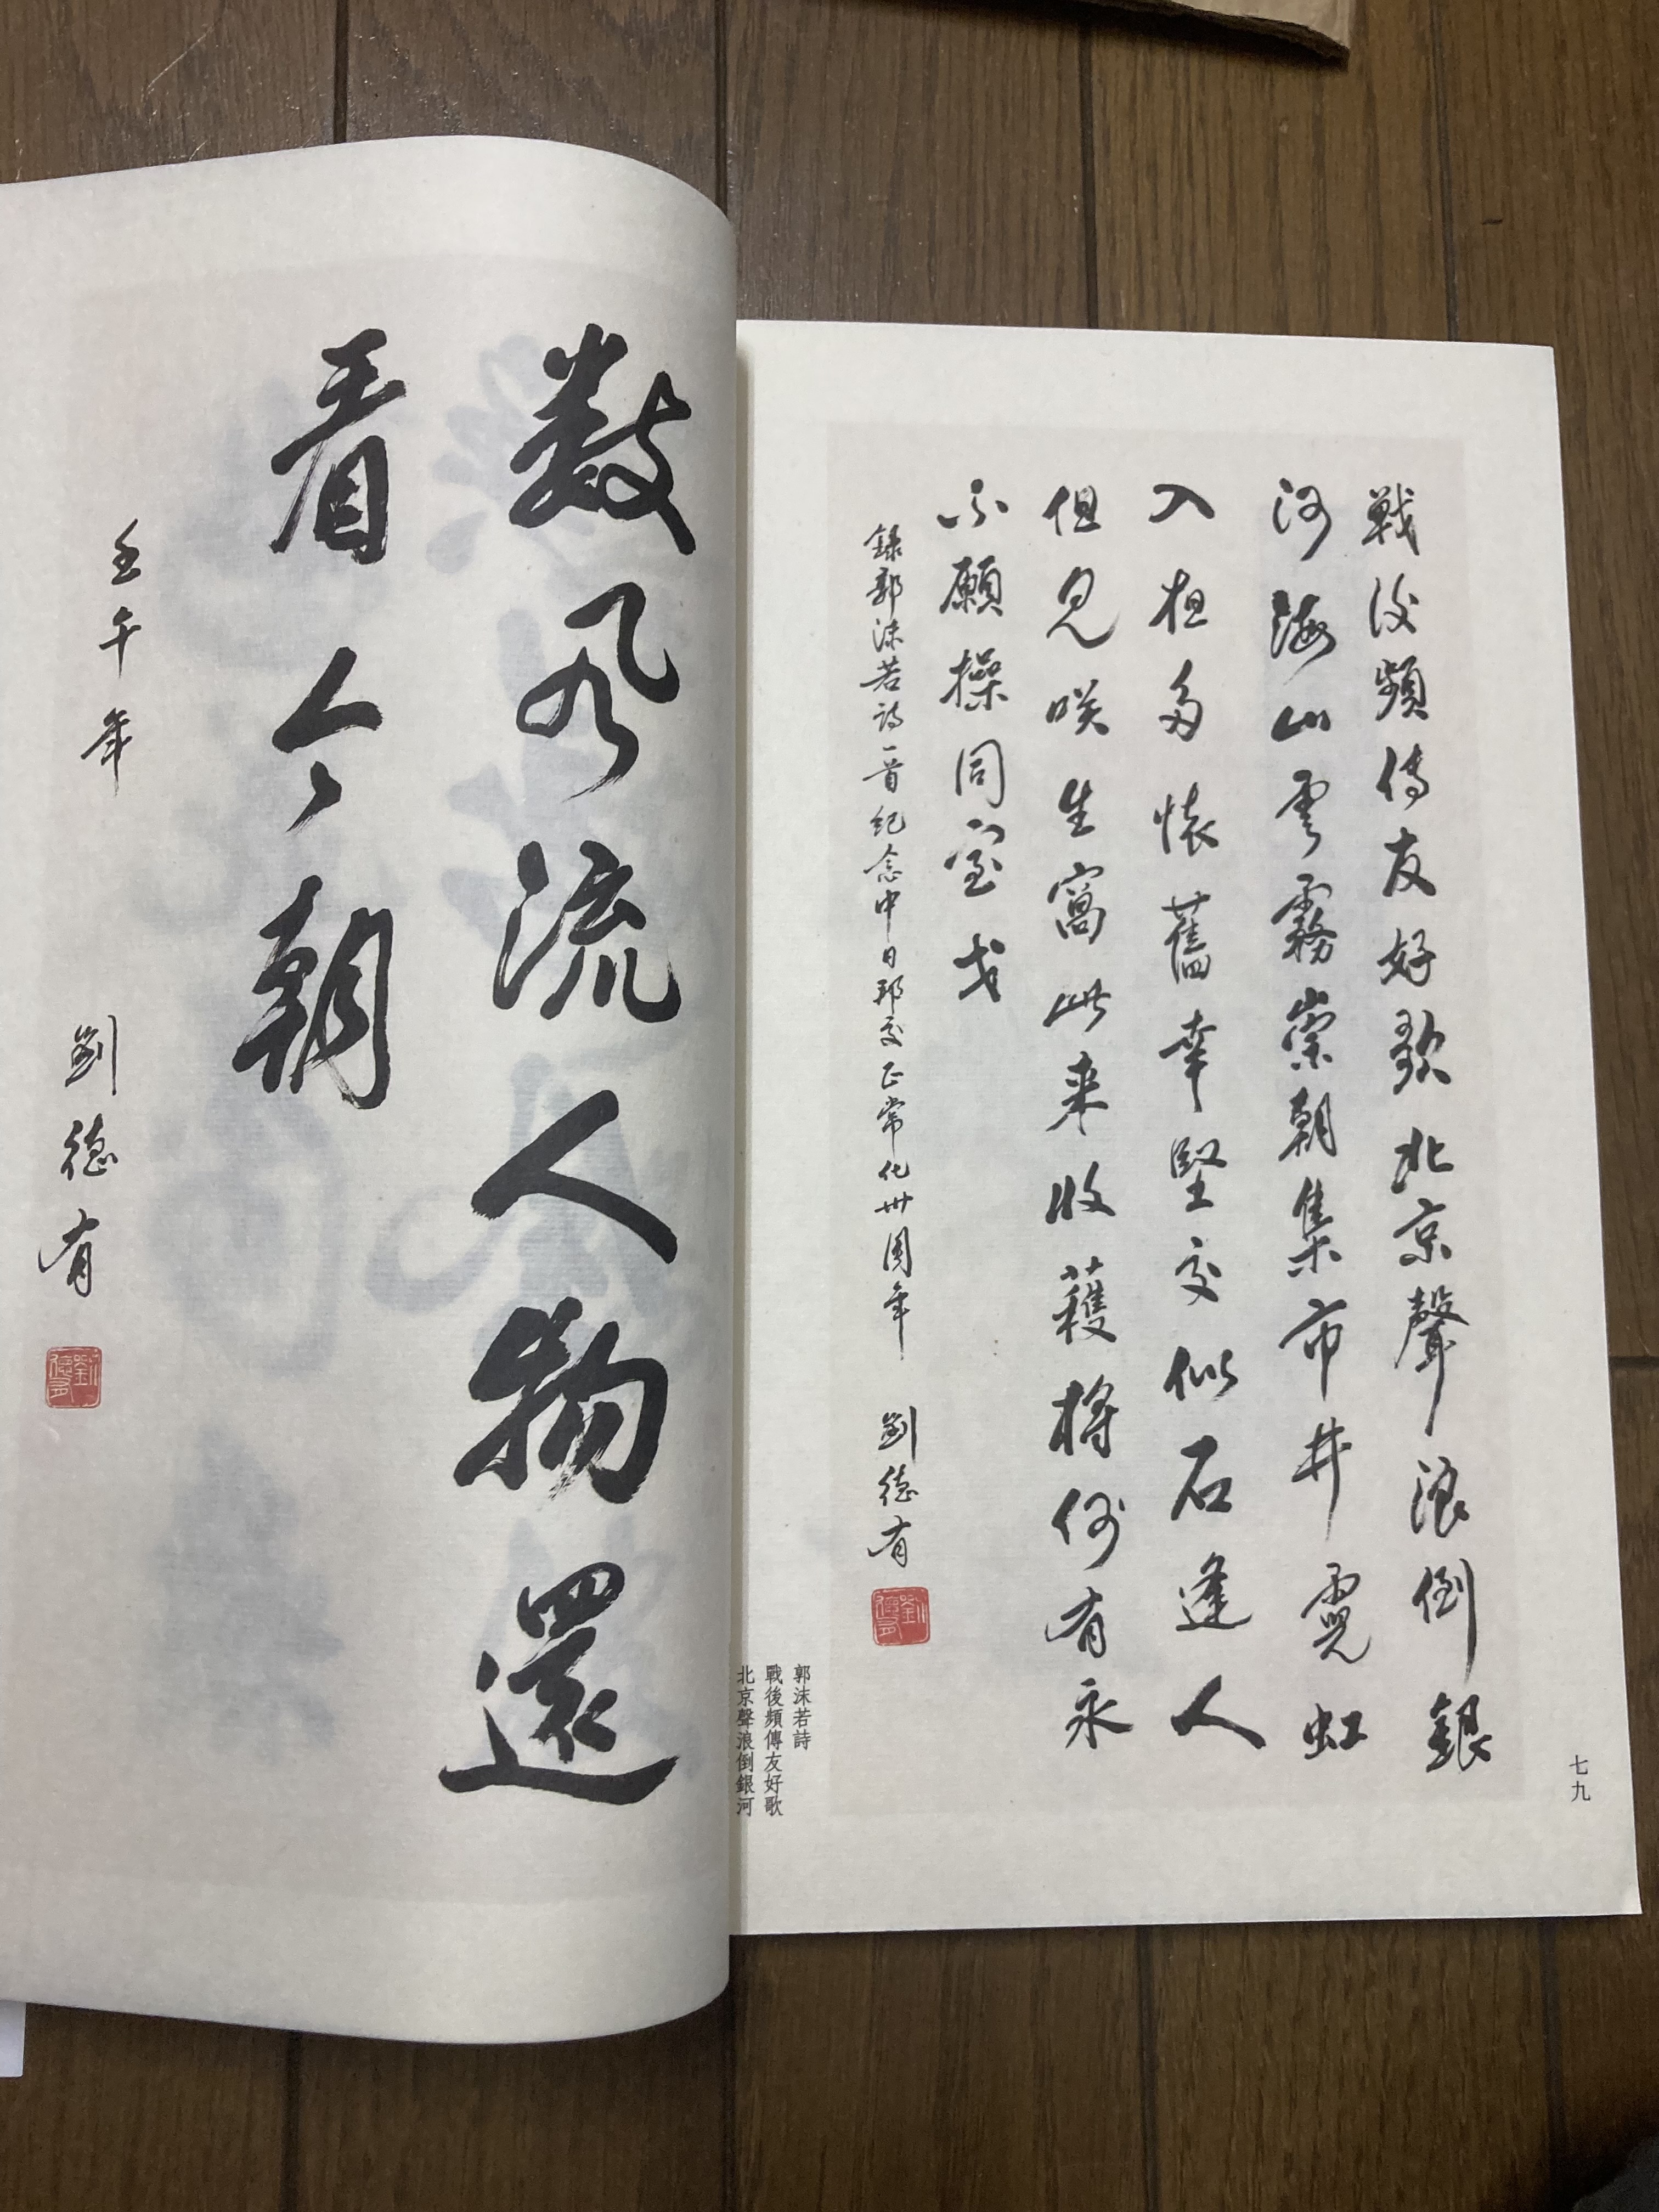 七九
戦後頻傳友好歌北京聲浪倒銀
河海山雲霧崇朝集市井霓虹
入夜多懷舊幸堅交似石逢人
但見咲生窩此来收穫将何有永
不願操同室戈
録郭沫若詩一首紀念中日邦交正常化卅周年 劉德有
劉德有
郭沫若詩
戰後頻傳友好歌
北京聲浪倒銀河
數風流人物還
看今朝
壬午年 劉德有
劉德有